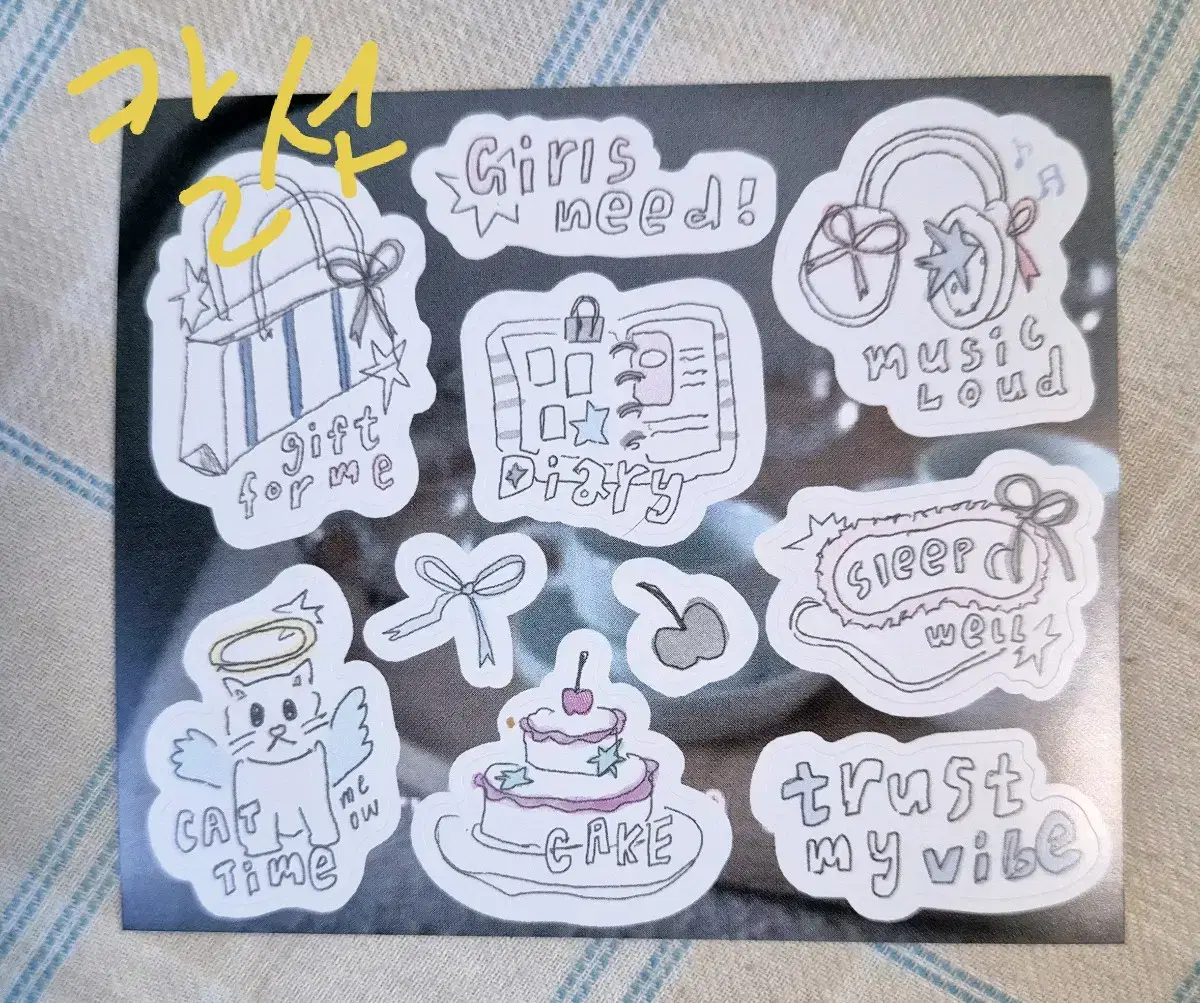 Girls
need!
music
LOUD
gift
for me
Diary
sleep
well
CAT
TIME
me
ow
CAKE
trust
my vibe